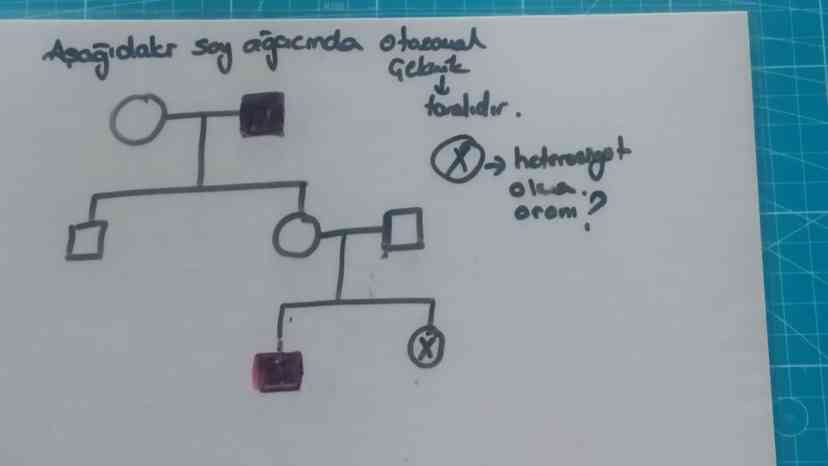 Aşağıdaki soy ağacında otozomal
Çekinik
↓
taralıdır.
X → heterozigot
olma
oranı?
X